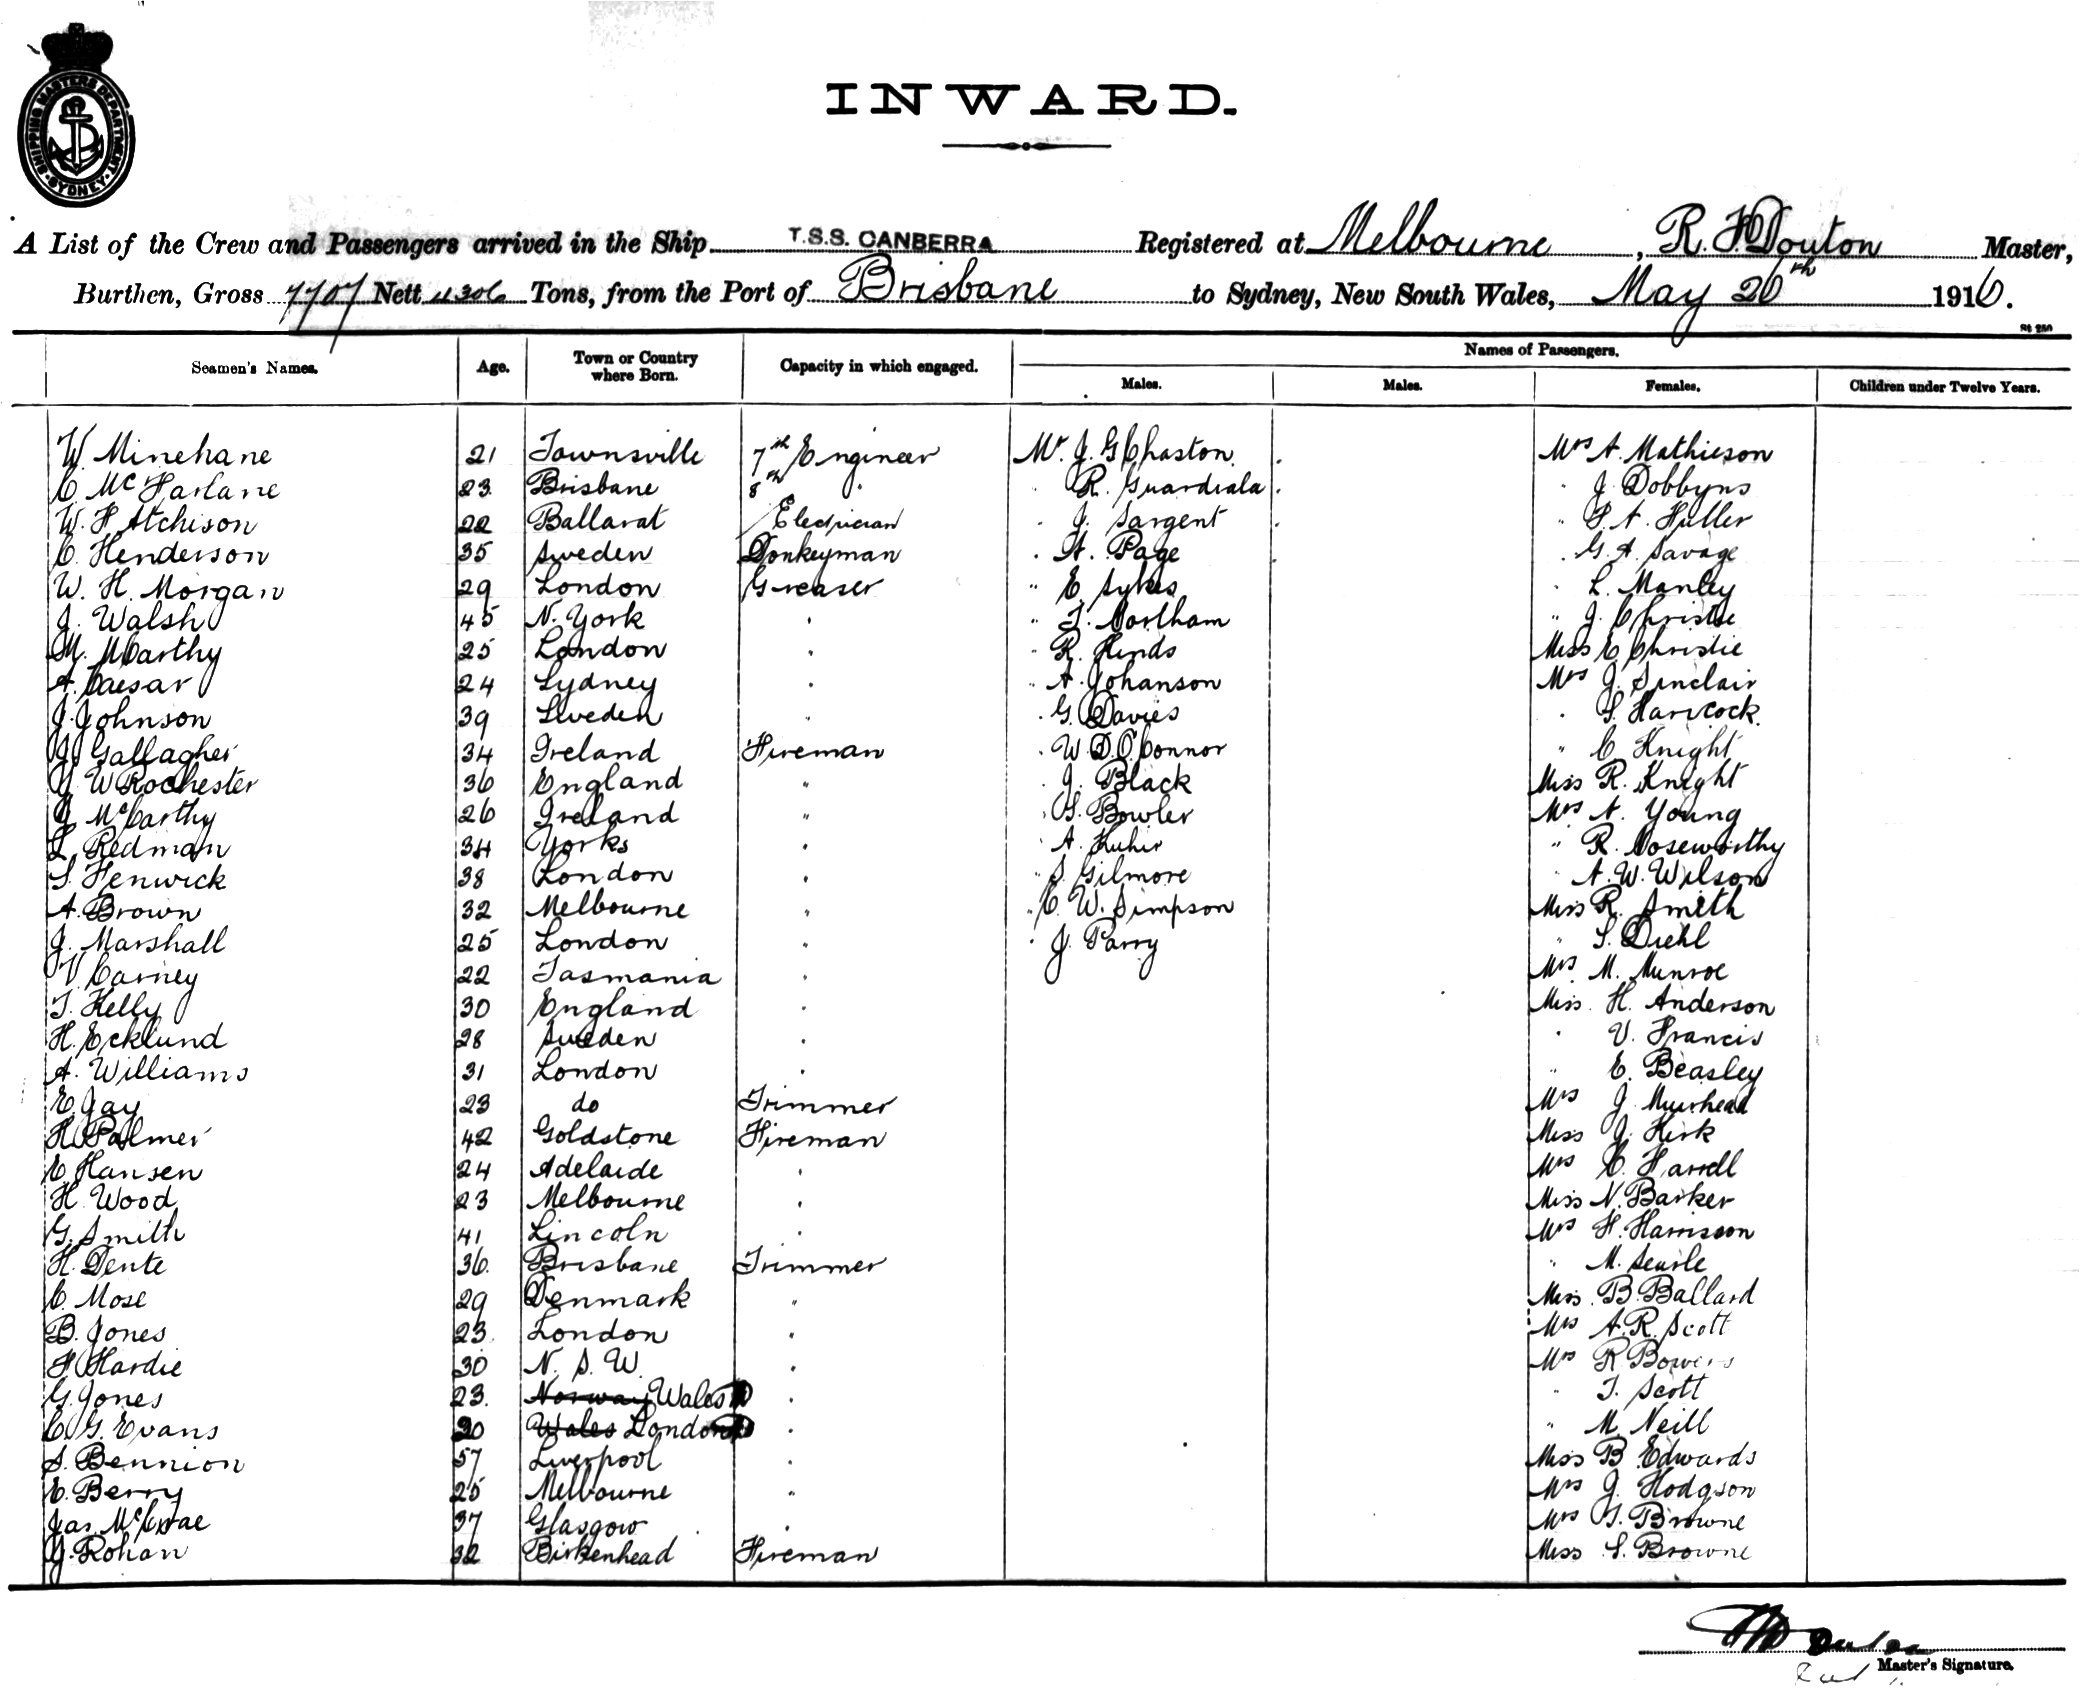 SHIPPING MASTERS DEPARTMENT
SYDNEY
INWARD.
A List of the Crew and Passengers arrived in the Ship T.S.S. CANBERRA Registered at Melbourne, R. F. Douton Master,
Burthen, Gross 7707 Nett 4306 Tons, from the Port of Brisbane to Sydney, New South Wales, May 26th 1916.
St 250
Seamen's Names. Age. Town or Country where Born. Capacity in which engaged. Names of Passengers.
Males. Males. Females. Children under Twelve Years.
W. Minehane 21 Townsville 7th Engineer Mr. J. G Chaston Mrs A. Mathieson
C. McFarlane 23 Brisbane 8th " " R. Guardiala " J. Dobbyns
W. F. Atchison 22 Ballarat Electrician " J. Sargent " S. A. Fuller
C. Henderson 35 Sweden Donkeyman " A. Page " G. A. Savage
W. H. Morgan 29 London Greaser " E. Sykes " L. Manley
J. Walsh 45 N. York " " T. Northam " J. Christie
M. McCarthy 25 London " " R. Hinds Miss E Christie
A. Caesar 24 Sydney " " A. Johanson Mrs J. Sinclair
J. Johnson 39 Sweden " " G. Davies " S. Hancock.
J. Gallagher 34 Ireland Fireman " W. D. O'Connor " C. Knight
J. W Rochester 36 England " " J. Black Miss R. Knight
J. McCarthy 26 Ireland " " S. Bowler Mrs A. Young
L. Redman 34 Yorks " " A. " R. Noseworthy
S. Fenwick 38 London " " S. Gilmore " A. W. Wilson
A. Brown 32 Melbourne " " C. W. Simpson Miss R. Smith
J. Marshall 25 London " " J. Parry " S. Diehl
V. Carney 22 Tasmania " Mrs M. Munroe
T. Kelly 30 England " Miss H. Anderson
H. Ecklund 28 Sweden " " V. Francis
A. Williams 31 London " " E. Beasley
E. Jay 23 do Trimmer Mrs J. Muirhead
H. Palmer 42 Goldstone Fireman Miss J. Kirk
E. Hansen 24 Adelaide " Mrs C. Farrell
H. Wood 23 Melbourne " Miss N. Barker
G. Smith 41 Lincoln " Mrs H. Harrison
H. Dente 36. Brisbane Trimmer " M. Searle
C. Mose 29 Denmark " Miss B. Ballard
B. Jones 23. London " Mrs A. R. Scott
F. Hardie 30 N. S. W. " Mrs R Bowers
G. Jones 23. Norway Wales " " T. Scott
C. G. Evans 20 Wales London " " M. Neill
S. Bennion 57 Liverpool " Miss B Edwards
E. Berry 25 Melbourne " Mrs J. Hodgson
Jas. McCrae 37 Glasgow " Mrs T. Browne
J. Rohan 32 Birkenhead Fireman Miss S. Browne
Master's Signature.